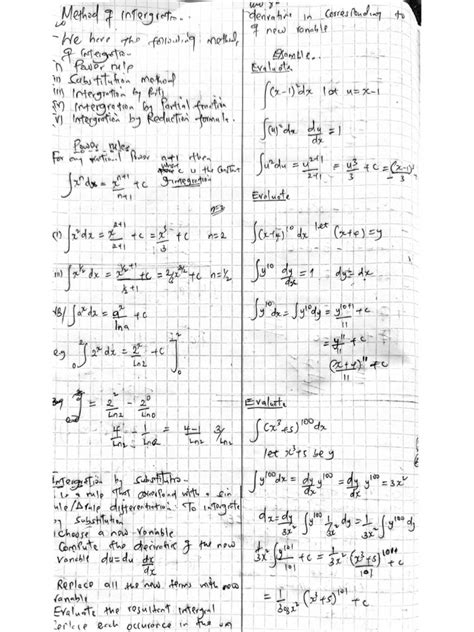 Method of intergration.
- We have the following method
of intergratn.
i) Power rule
ii) Substitution method
iii) Intergration by Parts
iv) Intergration by Partial fraction
v) Intergration by Reduction formula.
Power rules
For any rational Power n+1 then
∫xⁿdx = xⁿ⁺¹/n+1 + c where c is the constant
of intergration
(i) ∫x²dx = x²⁺¹/2+1 + c = x³/3 + c n=2
ii) ∫x^½ dx = n=½
NB/ ∫aˣdx = aˣ/lna + c
e.g ∫2ˣdx = 2ˣ/Ln2 + c
= 2²/Ln2 - 2⁰/Ln2
4/Ln2 - 1/Ln2 = 4-1/Ln2 3/Ln2
Intergration by substitutn-
is a rule that correspond with
rule differentiation. To intergrate
by substitution
choose a new variable
Compute the derivative of the new
variable du=du dx/dx
Replace all the new terms with new
variable
Evaluate the resultant intergral
Replace each occurance in the
derivative in corresponding to
of new variable
Example.
Evaluate
∫(x-1)²dx let u=x-1
∫(u)²dx du/dx = 1
∫u²du = u²⁺¹/2+1 = u³/3 + c = (x-1)³/3
Evaluate
∫(x+4)¹⁰dx let (x+4)=y
∫y¹⁰ dy/dx = 1 dy=dx
∫y¹⁰dx = ∫y¹⁰dy = y¹⁰⁺¹/11 + c
= y¹¹/11 + c
(x+4)¹¹/11 + c
Evaluate
∫(x³+5)¹⁰⁰dx
let x³+5 be y
∫y¹⁰⁰dx = dy/dx y¹⁰⁰ = dy/dx y¹⁰⁰ = 3x²
dx = dy/3x² ∫y¹⁰⁰ 1/3x² dy = 1/3x² ∫y¹⁰⁰dy
1/3x² y¹⁰¹/101 + c = 1/3x² (x³+5)¹⁰⁰⁺¹/101 + c
= 1/303x² (x³+5)¹⁰¹ + c